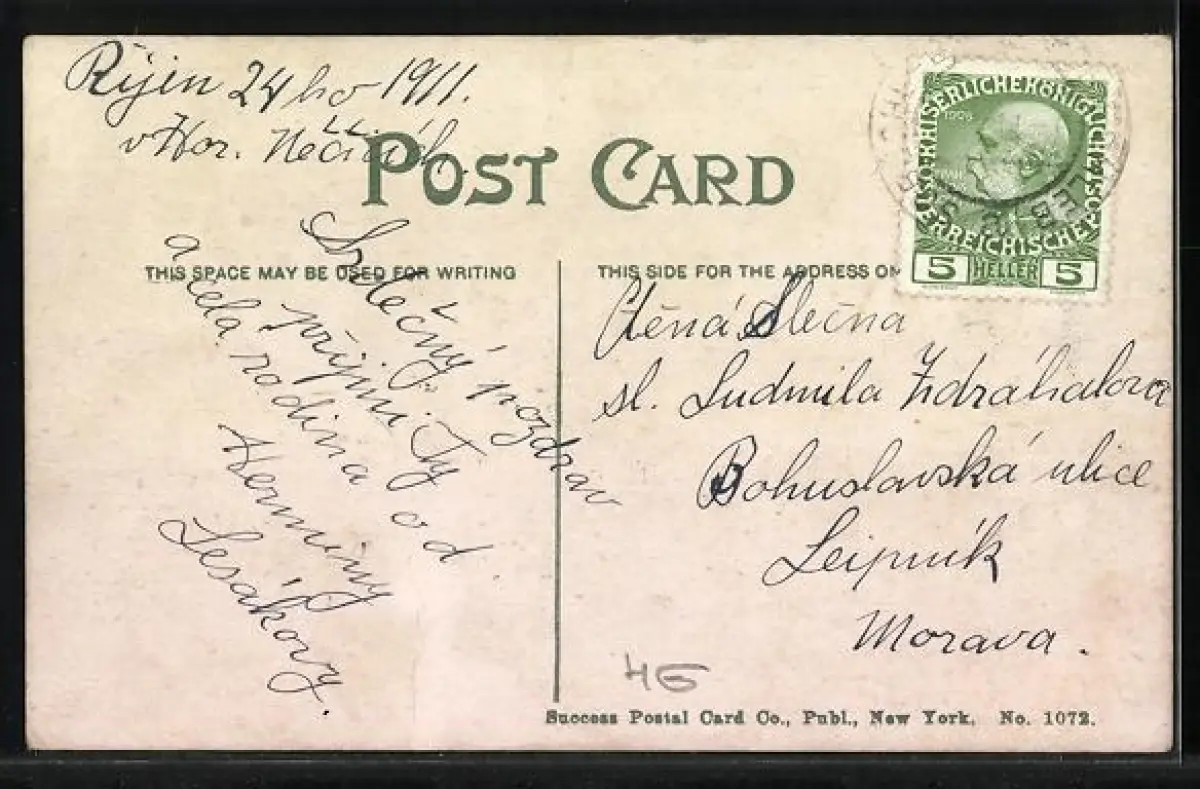 Říjen 24 ho 1911.
v Hor.
POST CARD
THIS SPACE MAY BE USED FOR WRITING
Srdečný pozdrav
přijmi Ty
a celá rodina od
Hermíny
Lesákovy.
THIS SIDE FOR THE ADDRESS ON
Ctěná Slečna
sl. Ludmila Zdráhalova
Bohuslavská ulice
Leipník
Morava.
KAISERLICHEKÖNIGLICHE
ÖSTERREICHISCHE
1908
5 HELLER 5
46
Success Postal Card Co., Publ., New York. No. 1072.